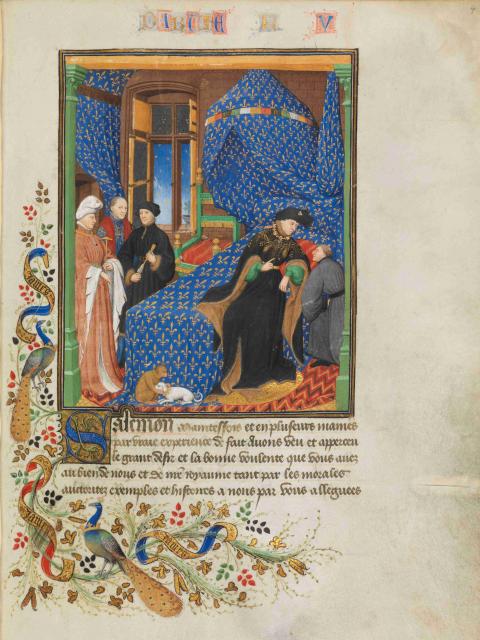 Salemon Maintesfois et en pluseurs manieres
par vraie experience de fait Avons veu et apperceu
le grant desir et la bonne voulente que vous avez
au bien de nous et de nre royaume tant par les morales
auctoritez exemples et histoires a nous par vous alleguees